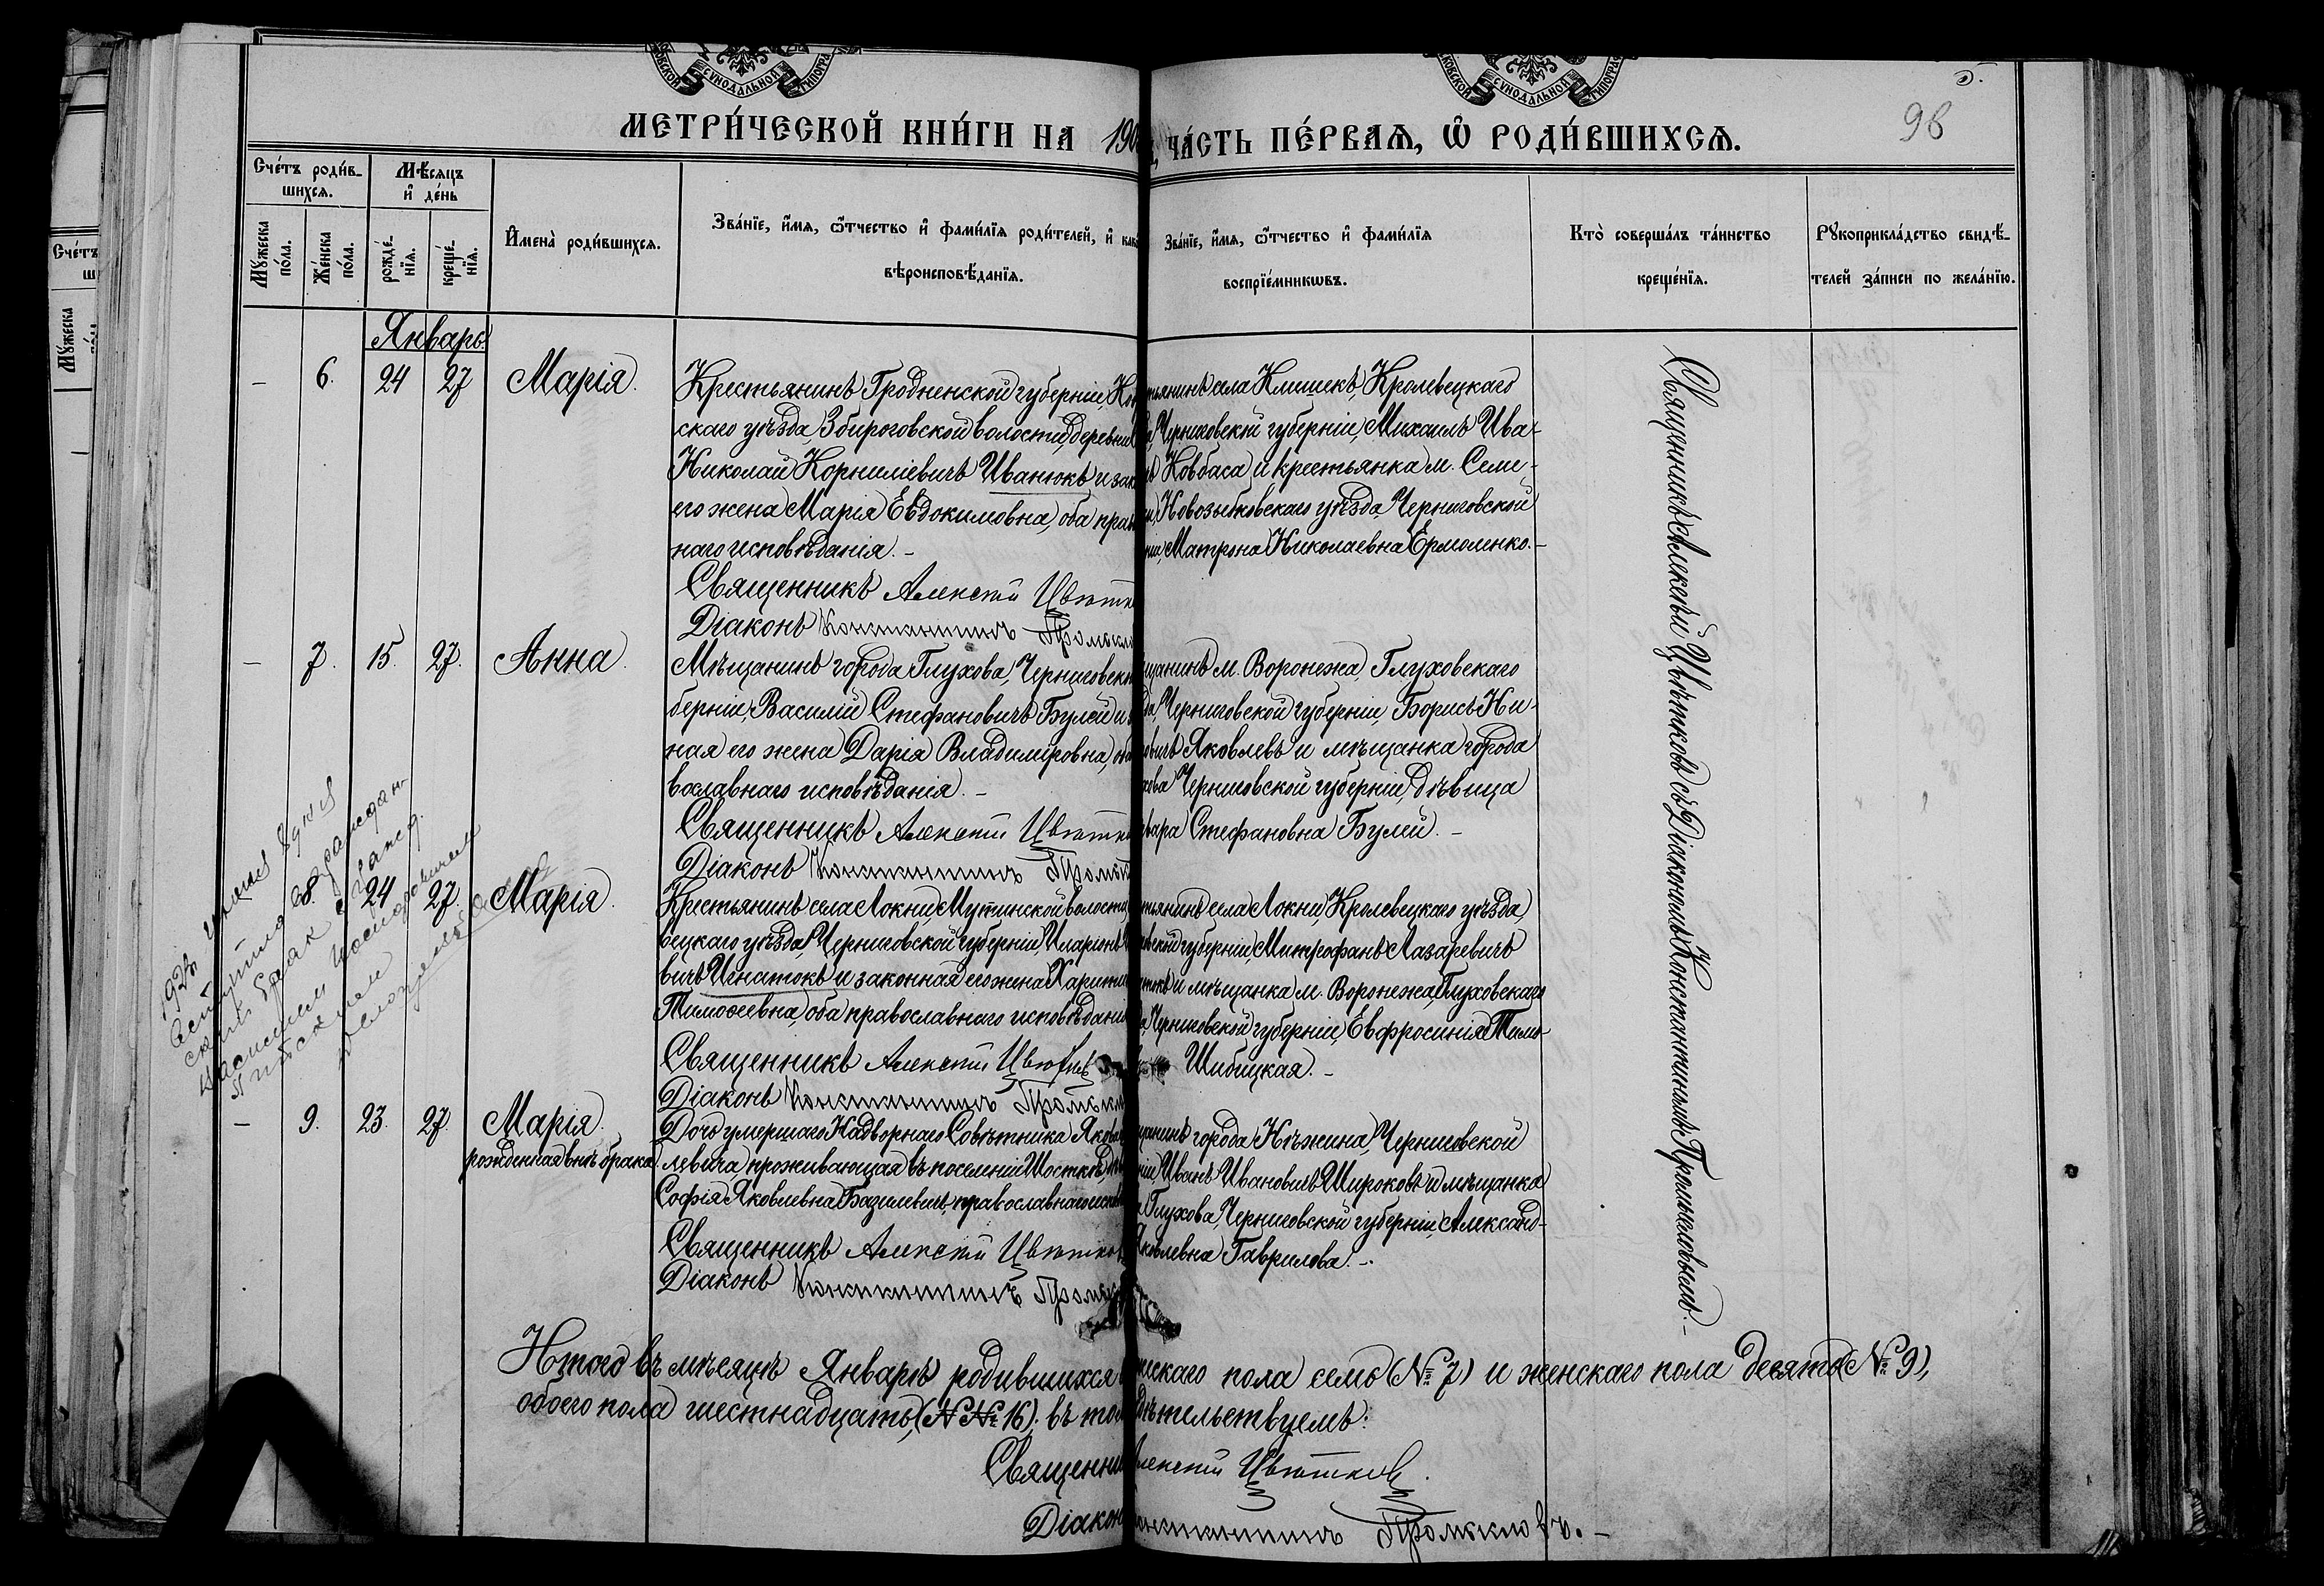 МОСКОВСКОЙ СѴНОДАЛЬНОЙ ТИПОГРА
КОВСКОЙ СѴНОДАЛЬНОЙ ТИПОГРА
5.
98
МЕТРИ́ЧЕСКОЙ КНИ́ГИ НА 190
ЧА́СТЬ ПЕ́РВАѦ, Ѡ҆ РОДИ́ВШИХСѦ.
Сче́тъ роди́в-
шихсѧ.
Мѣ́сяцъ
и҆ де́нь
Мꙋ́жеска по́ла.
Же́нска по́ла.
рожде́-нїѧ.
креще́-нїѧ.
И҆мена̀ роди́вшихсѧ.
Зва́нїе, и҆́мѧ, ѻ҆́тчество и҆ фами́лїѧ роди́телей, и҆ как
вѣроисповѣ́данїѧ.
Зва́нїе, и҆́мѧ, ѻ҆́тчество и҆ фами́лїѧ
воспрїе́мникѡвъ.
Кто̀ соверша́лъ та́инство
креще́нїѧ.
Рꙋкоприкла́дство свидѣ́-
телей за́писи по жела́нїю.
Январь.
– 6. 24 27 Марія.
Крестьянинъ Гродненской губерніи, Ко
скаго уѣзда, Збироговской волости, деревни
Николай Корниліевичъ Иванюкъ и зак
его жена Марія Евдокимовна, оба прав
наго исповѣданія. –
Священникъ Алексѣй Цвѣтк
Діаконъ Константинъ Промысл
тьянинъ села Клишекъ, Кролевецкаго
Черниговской губерніи, Михаилъ Ива-
Ковбаса и крестьянка м. Семе-
Новозыбковскаго уѣзда, Черниговской
ніи, Матрона Николаевна Ермоленко. –
– 7. 15. 27. Анна.
Мѣщанинъ города Глухова, Черниговско
берніи, Василій Стефановичъ Булей и
ная его жена Дарія Владиміровна, оба
вославнаго исповѣданія. –
Священникъ Алексѣй Цвѣтк
Діаконъ Константинъ Промы
щанинъ м. Воронежа, Глуховскаго
да, Черниговской губерніи, Борисъ Ни-
вичъ Яковлевъ и мѣщанка города
хова Черниговской губерніи, дѣвица
вара Стефановна Булей. –
8. 24 27. Марія.
Крестьянинъ села Локни, Мутинской волости
вецкаго уѣзда, Черниговской губерніи, Иларіонъ
вичъ Игнатокъ и законная его жена Харити
Тимоѳеевна, оба православнаго исповѣдані
Священникъ Алексѣй Цвѣтк
Діаконъ Константинъ Промысл
тьянинъ села Локни, Кролевецкаго уѣзда,
вской губерніи, Митрофанъ Лазаревичъ
токъ и мѣщанка м. Воронежа, Глуховскаго
а, Черниговской губерніи, Евфросинія Тимо-
Шибицкая. –
– 9. 23. 27. Марія.
рожденная внѣ брака.
Дочь умершаго Надворнаго Совѣтника Яков
левича проживающая въ поселеніи Шосткѣ
Софія Яковлевна Базилевичъ, православнаго испов
Священникъ Алексѣй Цвѣтков
Діаконъ Константинъ Промы
щанинъ города Нѣжина, Черниговской
ніи Иванъ Ивановичъ Широковъ и мѣщанка
Глухова, Черниговской губерніи, Александ-
Яковлевна Гаврилова. –
Священникъ Алексѣй Цвѣтковъ съ Діакономъ Константиномъ Промысловымъ. –
Итого въ мѣсяцѣ Январѣ родившихся
жескаго пола семь (№ 7) и женскаго пола девять (№ 9),
обоего пола шестнадцать, (№№ 16). въ том
дѣтельствуемъ:
Священни
лексѣй Цвѣтковъ.
Діакон
онстантинъ Промысловъ. –